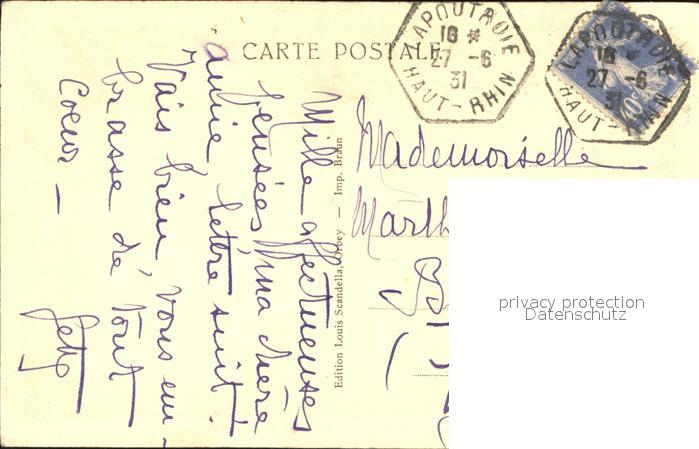 CARTE POSTALE
LAPOUTROIE
18 *
27 -6
31
HAUT-RHIN
LAPOUTROIE
18 *
27 -6
31
HAUT-RHIN
Mille affectueuses
pensées ma chère
amie lettre suit.
Vais bien vous em-
brasse de tout
Coeur —
Edition Louis Scandella, Orbey — Imp. Braun
Mademoiselle
Marth
privacy protection
Datenschutz